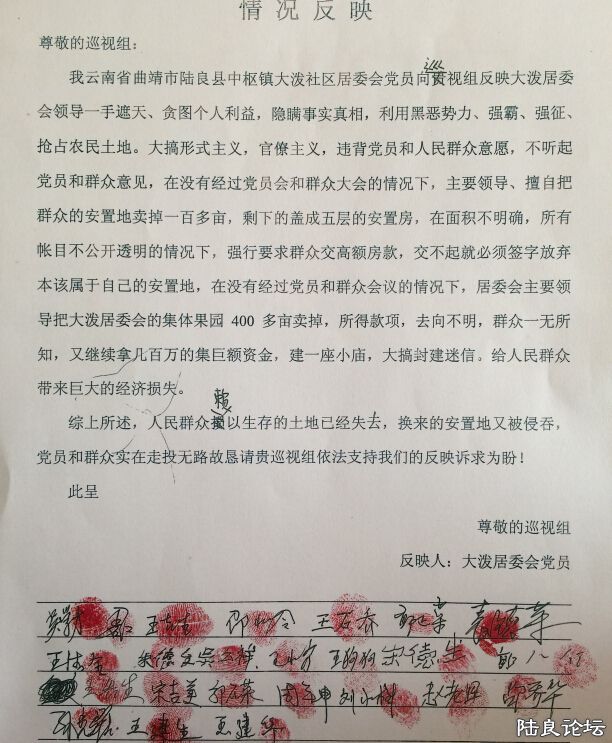 情况反映
尊敬的巡视组：
我云南省曲靖市陆良县中枢镇大泼社区居委会党员向巡视组反映大泼居委
会领导一手遮天、贪图个人利益，隐瞒事实真相，利用黑恶势力、强霸、强征、
抢占农民土地。大搞形式主义，官僚主义，违背党员和人民群众意愿，不听起
党员和群众意见，在没有经过党员会和群众大会的情况下，主要领导、擅自把
群众的安置地卖掉一百多亩，剩下的盖成五层的安置房，在面积不明确，所有
帐目不公开透明的情况下，强行要求群众交高额房款，交不起就必须签字放弃
本该属于自己的安置地，在没有经过党员和群众会议的情况下，居委会主要领
导把大泼居委会的集体果园 400 多亩卖掉，所得款项，去向不明，群众一无所
知，又继续拿几百万的集巨额资金，建一座小庙，大搞封建迷信。给人民群众
带来巨大的经济损失。
综上所述，人民群众赖以生存的土地已经失去，换来的安置地又被侵吞，
党员和群众实在走投无路故恳请贵巡视组依法支持我们的反映诉求为盼！
此呈
尊敬的巡视组
反映人：大泼居委会党员
宋德生
宋吉美 刘小林
王建生
陆良论坛